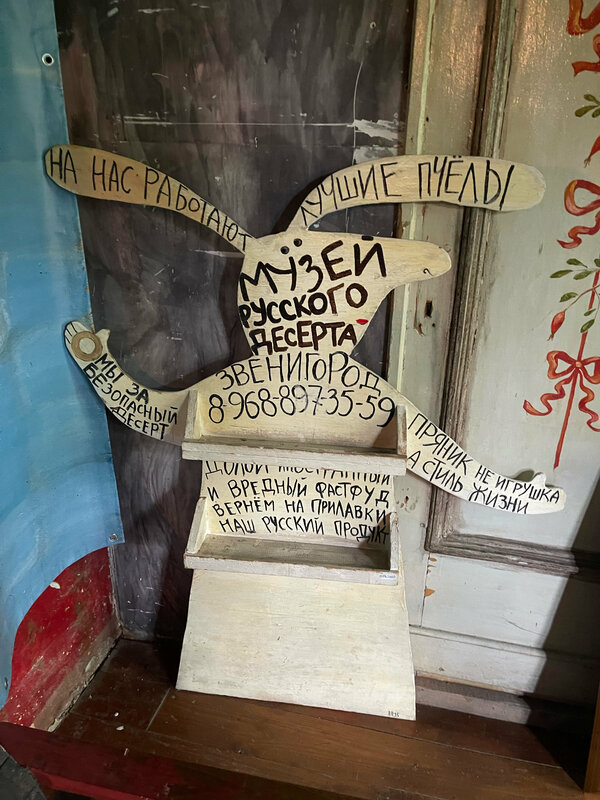 НА НАС РАБОТАЮТ
ЛУЧШИЕ ПЧЁЛЫ
МУЗЕЙ
РУССКОГО
ДЕСЕРТА
ЗВЕНИГОРОД
8-968-897-35-59
МЫ ЗА
БЕЗОПАСНЫЙ
ДЕСЕРТ
ПРЯНИК НЕ ИГРУШКА
А СТИЛЬ ЖИЗНИ
ДОЛОЙ ИНОСТРАННЫЙ
И ВРЕДНЫЙ ФАСТФУД
ВЕРНЁМ НА ПРИЛАВКИ
НАШ РУССКИЙ ПРОДУКТ